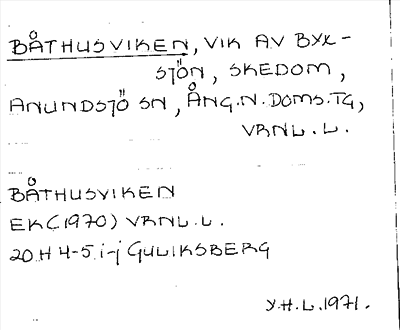 BÅTHUSVIKEN, VIK AV BYX-
SJÖN, SKEDOM,
ANUNDSJÖ SN, ÅNG.N.DOMS.TG,
VRNL.L.
BÅTHUSVIKEN
EK(1970) VRNL.L.
20 H 4-5 i-j GULIKSBERG
Y.H.L.1971.